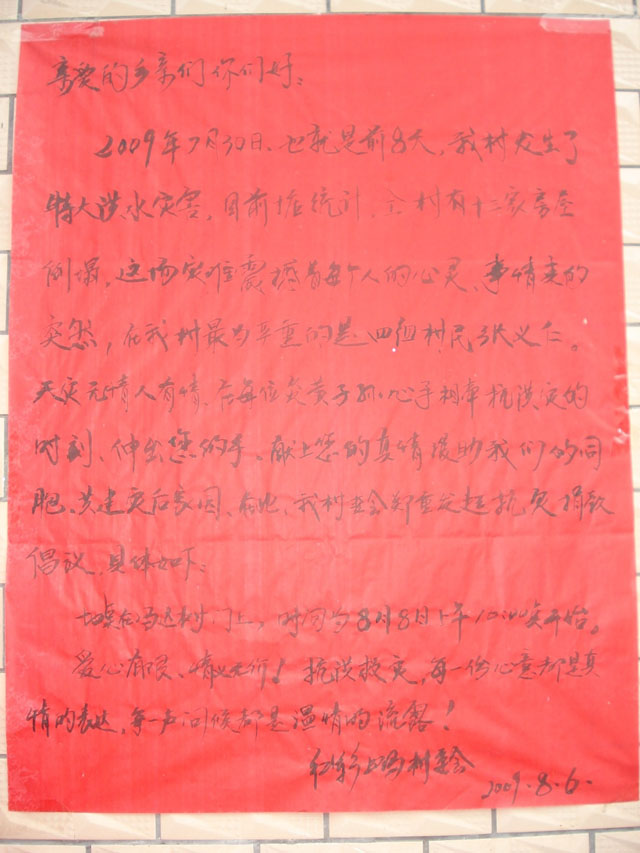 亲爱的乡亲们你们好:
2009年7月30日、也就是前8天,我村发生了
特大洪水灾害,目前据统计,全村有十三家房屋
倒塌,这场灾难震撼着每个人的心灵、事情来的
突然,在我村最为严重的是四组村民张义仁。
天灾无情人有情、在每位炎黄子孙心手相牵抗洪灾的
时刻、伸出您的手、献上您的真情援助我们的同
胞、共建灾后家园、在此、我村委会郑重发起抗灾捐款
倡议,具体如下:
地点在马 村门上,时间为8月8日上午10:00实开始。
爱心有限、情义无价!抗洪救灾,每一份心意都是真
情的表达,每一声问候都是温情的流露!
村委会
2009.8.6.